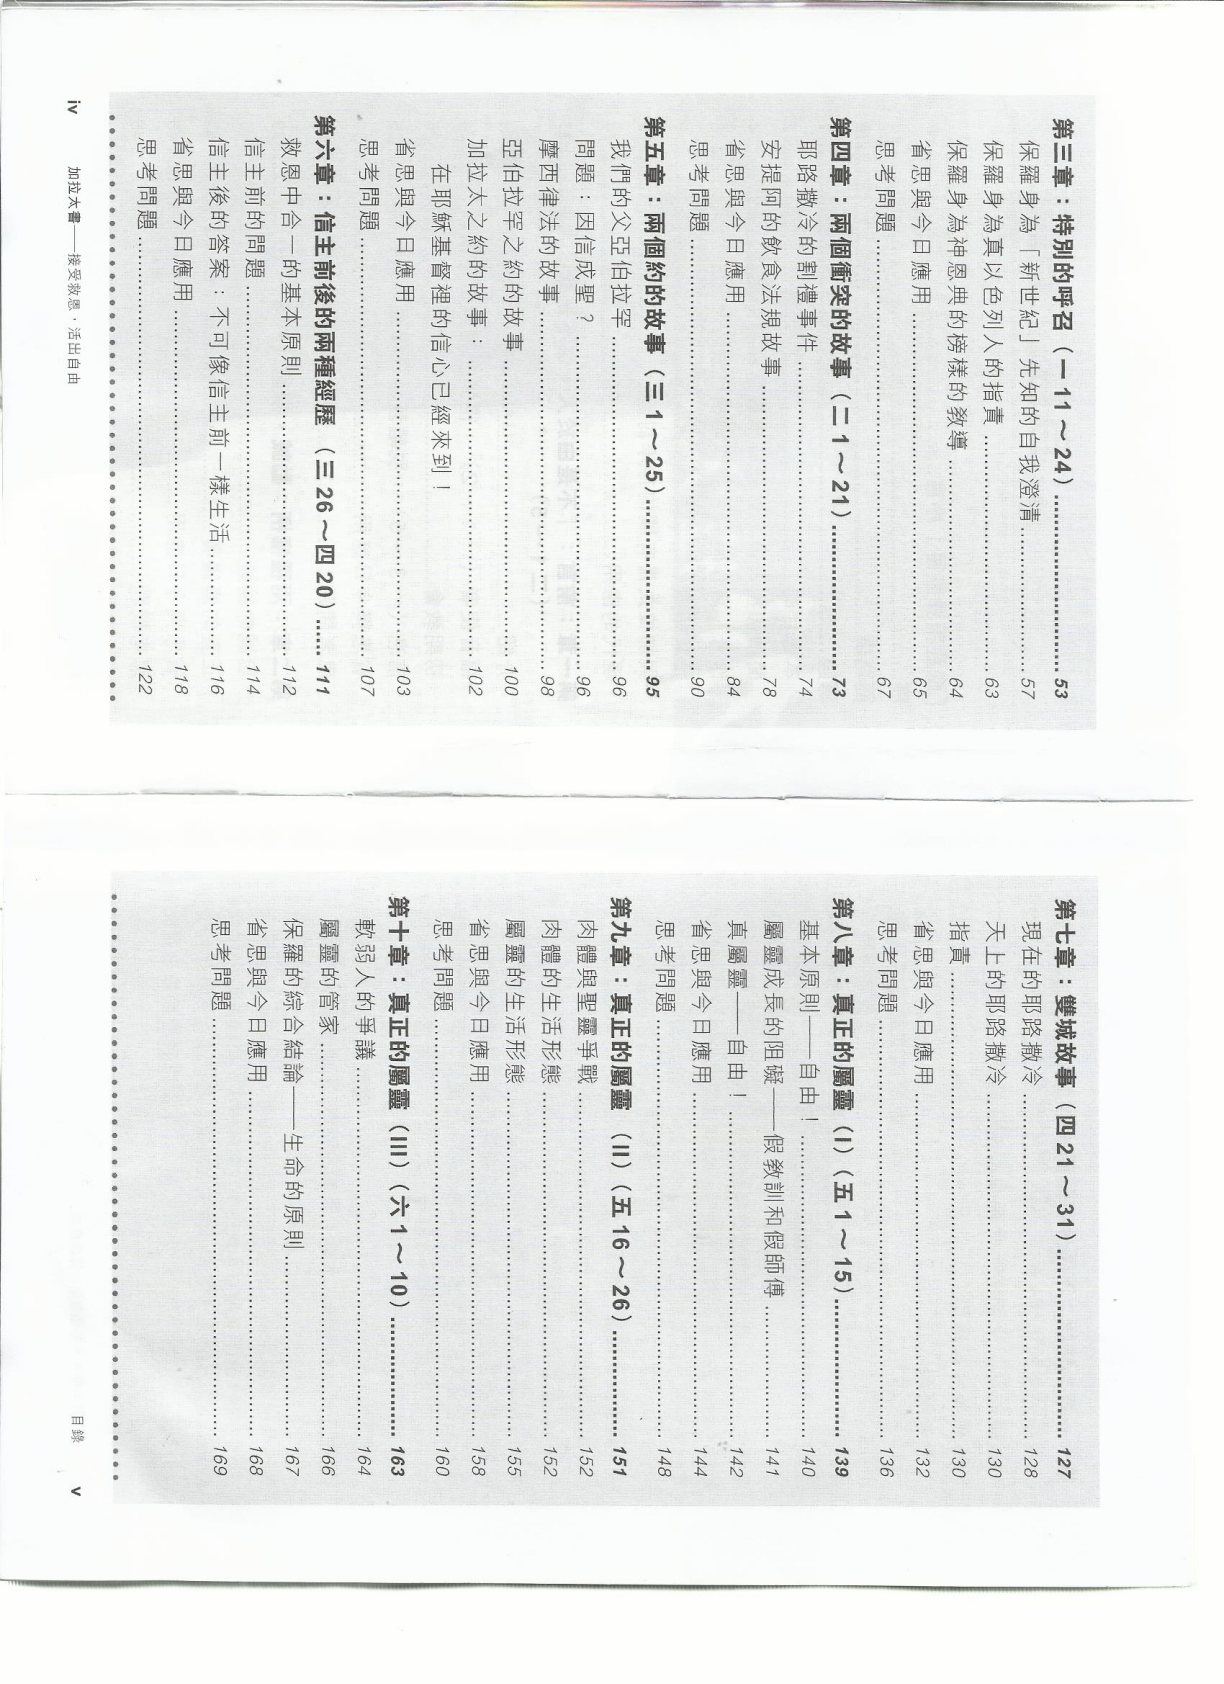 第三章：特別的呼召（一11～24）......53
保羅身為「新世紀」先知的自我澄清......57
保羅身為真以色列人的指責......63
保羅身為神恩典的榜樣的教導......64
省思與今日應用......65
思考問題......67
第四章：兩個衝突的故事（二1～21）......73
耶路撒冷的割禮事件......74
安提阿的飲食法規故事......78
省思與今日應用......84
思考問題......90
第五章：兩個約的故事（三1～25）......95
我們的父亞伯拉罕......96
問題：因信成聖？......96
摩西律法的故事......98
亞伯拉罕之約的故事......100
加拉太之約的故事：......102
在耶穌基督裡的信心已經來到！
省思與今日應用......103
思考問題......107
第六章：信主前後的兩種經歷（三26～四20）......111
救恩中合一的基本原則......112
信主前的問題......114
信主後的答案：不可像信主前一樣生活......116
省思與今日應用......118
思考問題......122
iv 加拉太書──接受救恩，活出自由
第七章：雙城故事（四21～31）......127
現在的耶路撒冷......128
天上的耶路撒冷......130
指責......130
省思與今日應用......132
思考問題......136
第八章：真正的屬靈（I）（五1～15）......139
基本原則──自由！......140
屬靈成長的阻礙──假教訓和假師傅......141
真屬靈──自由！......142
省思與今日應用......144
思考問題......148
第九章：真正的屬靈（II）（五16～26）......151
肉體與聖靈爭戰......152
肉體的生活形態......152
屬靈的生活形態......155
省思與今日應用......158
思考問題......160
第十章：真正的屬靈（III）（六1～10）......163
軟弱人的爭議......164
屬靈的管家......166
保羅的綜合結論──生命的原則......167
省思與今日應用......168
思考問題......169
目錄 v